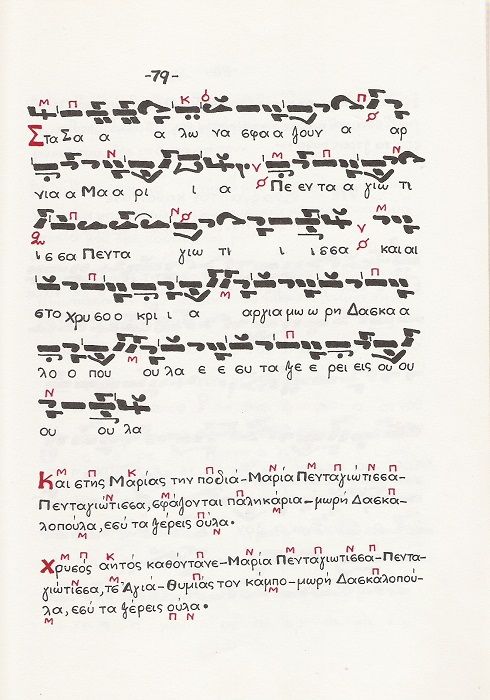 -79-
Στα Σα α α λω να σφα α ζουν α αρ
νια α Μα α ρι ι α Πε εν τα α γιω τι
ι σσα Πεντα γιω τι ι ι σσα και αι
στο χρυ σο ο κρι ι α αργια μω ω ρη Δασκα α
λο ο που ου λα ε ε συ τα ξε ε ρει εις ου ου
ου ου λα
Και στης Μαρίας την ποδιά-Μαρία Πενταγιώτισσα-
Πενταγιώτισσα, σφάζονται παληκάρια-μωρή Δασκα-
λοπούλα, εσύ τα ξέρεις ούλα.
Χρυσός αητός καθόντανε-Μαρία Πενταγιωτισσα-Πεντα-
γιώτισσα, τς Αγιά-Θυμιάς τον κάμπο-μωρή Δασκαλοπού-
λα, εσύ τα ξέρεις ούλα.